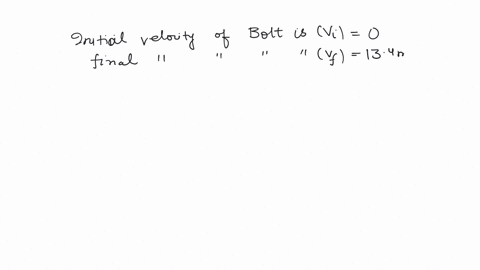 Initial velority of Bolt is (Vi) = 0
final " " " " (Vf) = 13.4m